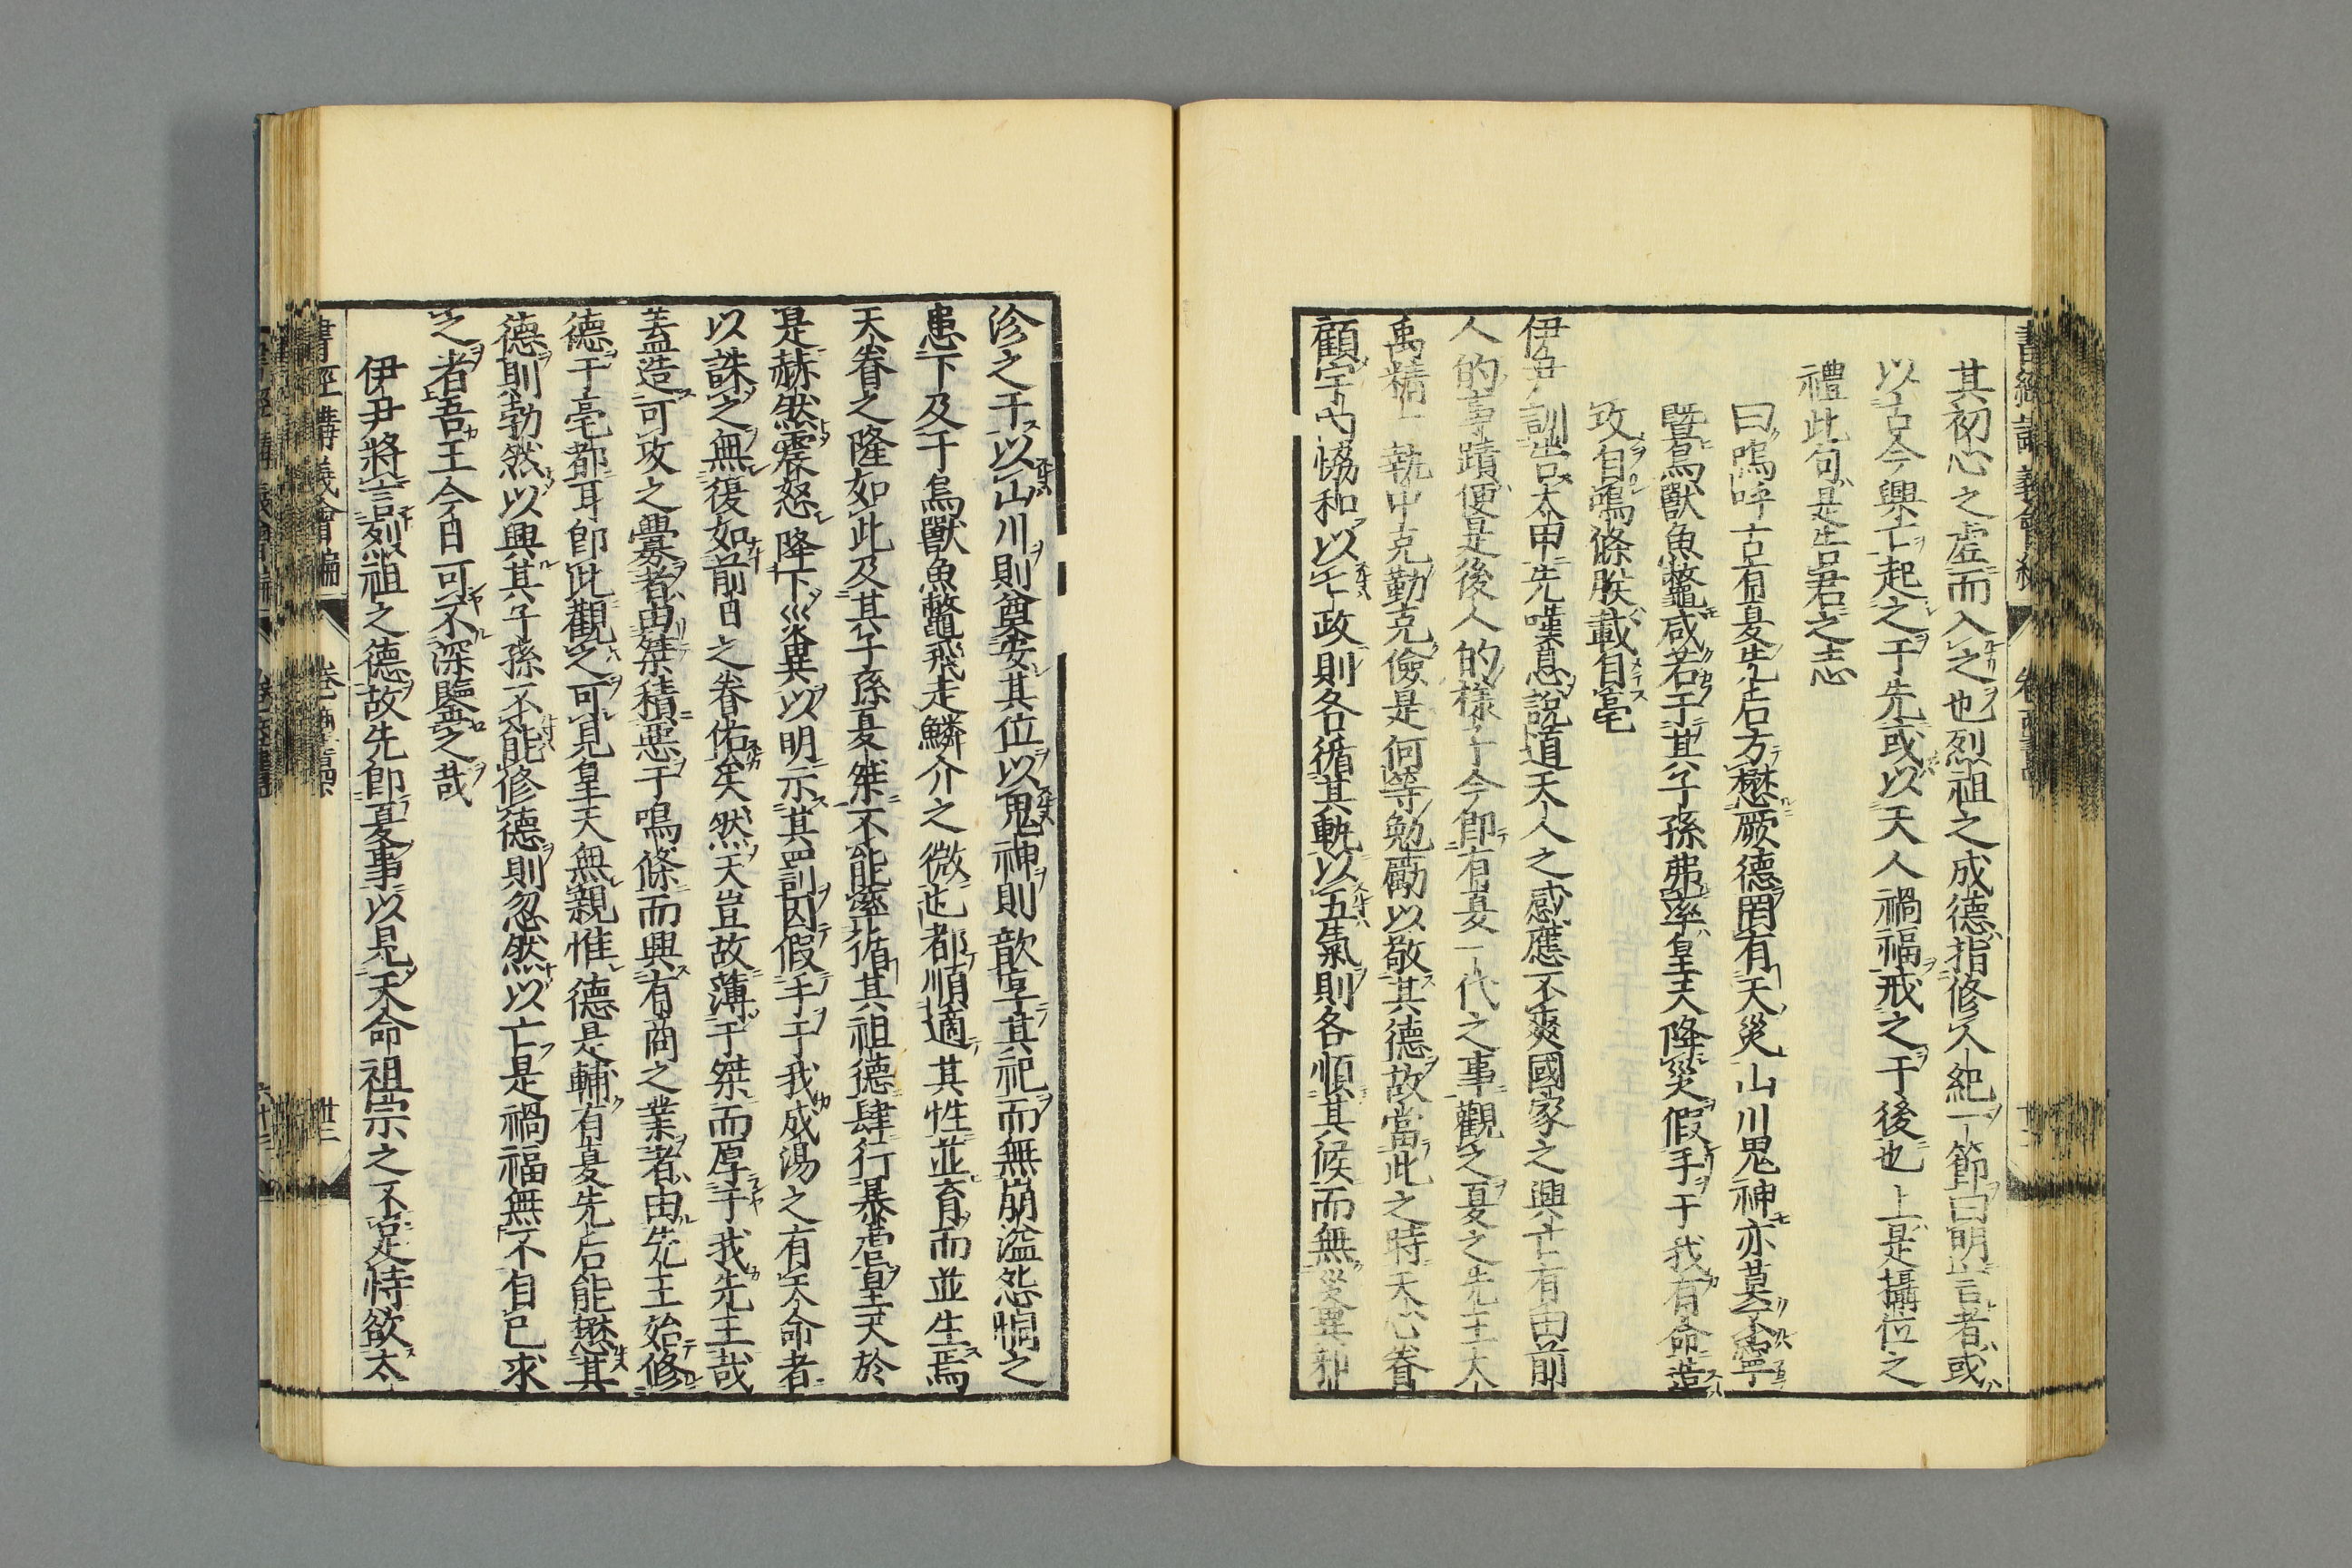 其初心之虛而入之也烈祖之成德指修人紀一節曰明言者或
以古今興亡起之于先或以天人禍福戒之于後也上是攝位之
禮此句是告君之志
曰嗚呼古有夏先后方懋厥德罔有天災山川鬼神亦莫不寧
暨鳥獸魚鼈咸若于其子孫弗率皇天降災假手于我有命造
攻自鳴條朕載自亳
伊尹訓告太甲先嘆息說道天人之感應不爽國家之興亡有由前
人的事蹟便是後人的樣子今即有夏一代之事觀之夏之先王大
禹精一執中克勤克儉是何等勉勵以敬其德故當此之時天心眷
顧宇內恊和以七政則各循其軌以五氣則各順其候而無災異邪
沴之干以山川則奠安其位以鬼神則歆享其祀而無崩溢怨恫之
患下及于鳥獸魚鼈飛走鱗介之微也都順適其性並育而並生焉
天眷之隆如此及其子孫夏桀不能率循其祖德肆行暴虐皇天於
是赫然震怒降下災異以明示其罰因假手于我成湯之有天命者
以誅之無復如前日之眷佑矣然天豈故薄于桀而厚于我先王哉
盖造可攻之釁者由桀積惡于鳴條而興有商之業者由先王始修
德于亳都耳即此觀之可見皇天無親惟德是輔有夏先后能懋其
德則勃然以興其子孫不能修德則忽然以亡是禍福無不自己求
之者吾王今日可不深鑒之哉
伊尹將言烈祖之德故先即夏事以見天命祖宗之不足恃欲太
書經講義會編
卷
商書
廿二